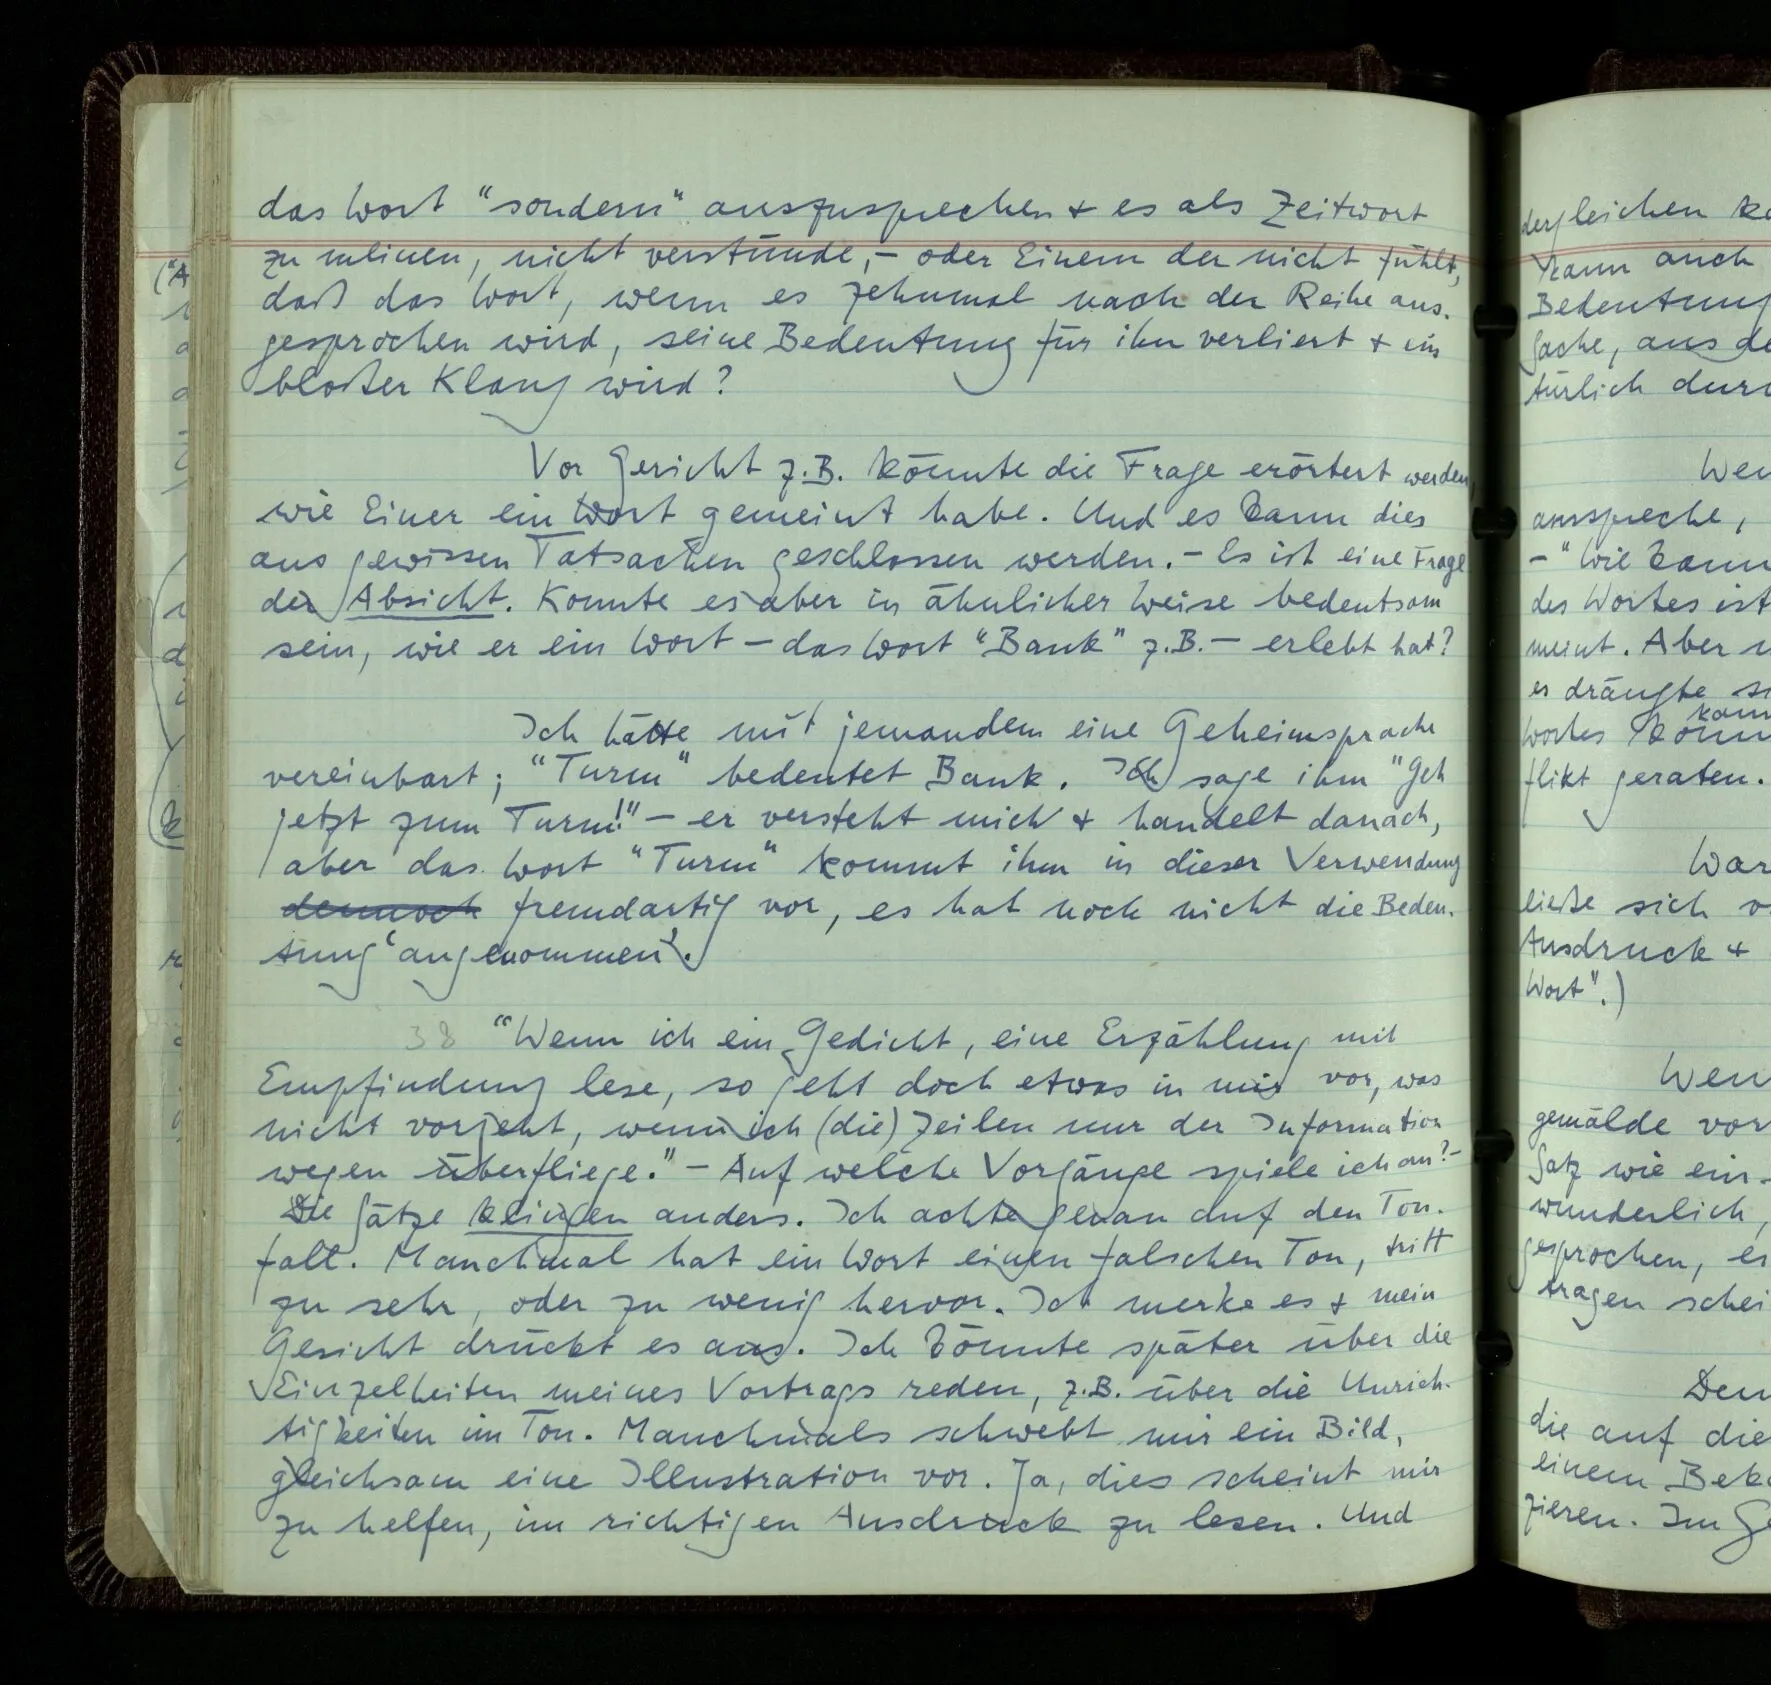 das Wort "sondern" auszusprechen & es als Zeitwort
zu meinen, nicht verstünde,– oder Einem der nicht fühlt,
daß das Wort, wenn es zehnmal nach der Reihe aus-
gesprochen wird, seine Bedeutung für ihn verliert & ein
bloßer Klang wird?
Vor Gericht z.B. könnte die Frage erörtert werden,
wie Einer ein Wort gemeint habe. Und es kann dies
aus gewissen Tatsachen geschlossen werden. – Es ist eine Frage
der Absicht. Konnte es aber in ähnlicher Weise bedeutsam
sein, wie er ein Wort – das Wort "Bank" z.B. – erlebt hat?
Ich hätte mit jemandem eine Geheimsprache
vereinbart; "Turm" bedeutet Bank. Ich sage ihm "Geh
jetzt zum Turm!" – er versteht mich & handelt danach,
aber das Wort "Turm" kommt ihm in dieser Verwendung
dennoch fremdartig vor, es hat noch nicht die Bedeu-
tung 'angenommen'.
38 "Wenn ich ein Gedicht, eine Erzählung mit
Empfindung lese, so geht doch etwas in mir vor, was
nicht vorgeht, wenn ich (die) Zeilen nur der Information
wegen überfliege." – Auf welche Vorgänge spiele ich an? –
Die Sätze klingen anders. Ich achte genau auf den Ton-
fall. Manchmal hat ein Wort einen falschen Ton, tritt
zu sehr, oder zu wenig hervor. Ich merke es & mein
Gesicht drückt es aus. Ich könnte später über die
Einzelheiten meines Vortrags reden, z.B. über die Unrich-
tigkeiten im Ton. Manchmals schwebt mir ein Bild,
gleichsam eine Illustration vor. Ja, dies scheint mir
zu helfen, im richtigen Ausdruck zu lesen. Und
dergleichen
kann auch
Bedeutung
Sache, aus
türlich
ausspreche,
– "Wie kann
des Wortes ist
meint. Aber
es drängte
kann
Wortes
flikt geraten.
ließe sich
Ausdruck &
Wort".)
gemälde vor
Satz wie ein
wunderlich,
gesprochen,
tragen
die auf die
einem
zieren. Im